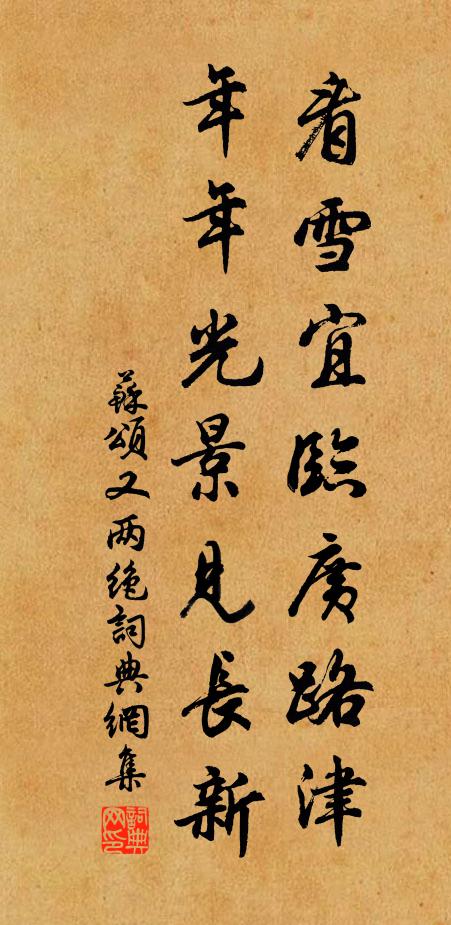 看雪宜臨廣路津
年年光景見長新
蘇頌又两絶詞典網集
詞典網印